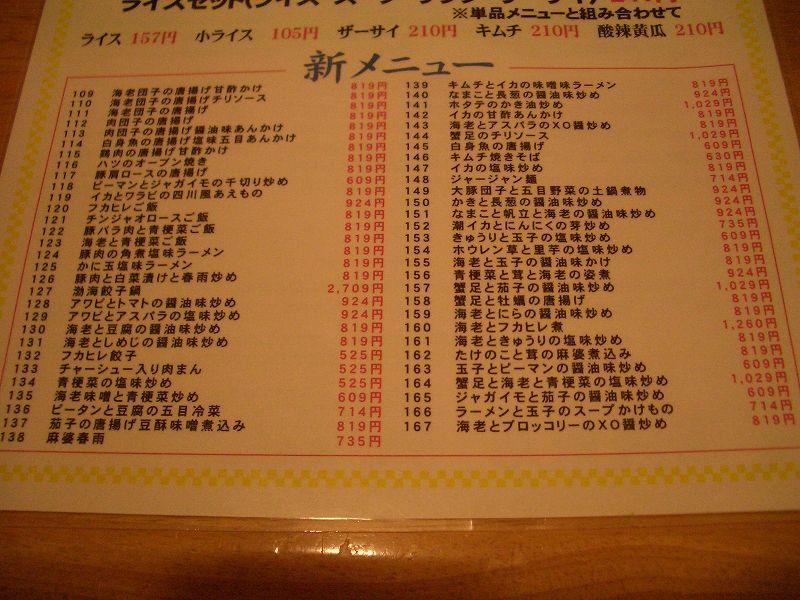 ライスセット(ライス・スープ・ザーサイ)
※単品メニューと組み合わせて
ライス 157円 小ライス 105円 ザーサイ 210円 キムチ 210円 酸辣黄瓜 210円
新メニュー
109 海老団子の唐揚げ甘酢かけ 819円
110 海老団子の唐揚げチリソース 819円
111 海老団子の唐揚げ 819円
112 肉団子の唐揚げ 819円
113 肉団子の唐揚げ醤油味あんかけ 819円
114 白身魚の唐揚げ塩味五目あんかけ 819円
115 鶏肉の唐揚げ甘酢かけ 819円
116 ハツのオーブン焼き 819円
117 豚肩ロースの唐揚げ 819円
118 ピーマンとジャガイモの千切り炒め 609円
119 イカとワラビの四川風あえもの 819円
120 フカヒレご飯 924円
121 チンジャオロースご飯 819円
122 豚バラ肉と青梗菜ご飯 819円
123 海老と青梗菜ご飯 819円
124 豚肉の角煮塩味ラーメン 819円
125 かに玉塩味ラーメン 819円
126 豚肉と白菜漬けと春雨炒め 819円
127 渤海餃子鍋 2,709円
128 アワビとトマトの醤油味炒め 924円
129 アワビとアスパラの塩味炒め 924円
130 海老と豆腐の醤油味炒め 819円
131 海老としめじの醤油味炒め 819円
132 フカヒレ餃子 525円
133 チャーシュー入り肉まん 525円
134 青梗菜の塩味炒め 525円
135 海老味噌と青梗菜炒め 609円
136 ピータンと豆腐の五目冷菜 714円
137 茄子の唐揚げ豆酥味噌煮込み 819円
138 麻婆春雨 735円
139 キムチとイカの味噌味ラーメン 819円
140 なまこと長葱の醤油味炒め 924円
141 ホタテのかき油炒め 1,029円
142 イカの甘酢あんかけ 819円
143 海老とアスパラのXO醤炒め 819円
144 蟹足のチリソース 1,029円
145 白身魚の唐揚げ 609円
146 キムチ焼きそば 630円
147 イカの塩味炒め 819円
148 ジャージャン麺 714円
149 大豚団子と五目野菜の土鍋煮物 924円
150 かきと長葱の醤油味炒め 924円
151 なまこと帆立と海老の醤油味炒め 924円
152 潮イカとにんにくの芽炒め 735円
153 きゅうりと玉子の塩味炒め 609円
154 ホウレン草と里芋の塩味炒め 819円
155 海老と玉子の醤油味かけ 819円
156 青梗菜と茸と海老の姿煮 924円
157 蟹足と茄子の醤油味炒め 1,029円
158 蟹足と牡蠣の唐揚げ 819円
159 海老とにらの醤油味炒め 819円
160 海老とフカヒレ煮 1,260円
161 海老ときゅうりの塩味炒め 819円
162 たけのこと茸の麻婆煮込み 819円
163 玉子とピーマンの醤油味炒め 609円
164 蟹足と海老と青梗菜の塩味炒め 1,029円
165 ジャガイモと茄子の醤油味炒め 609円
166 ラーメンと玉子のスープかけもの 714円
167 海老とブロッコリーのXO醤炒め 819円